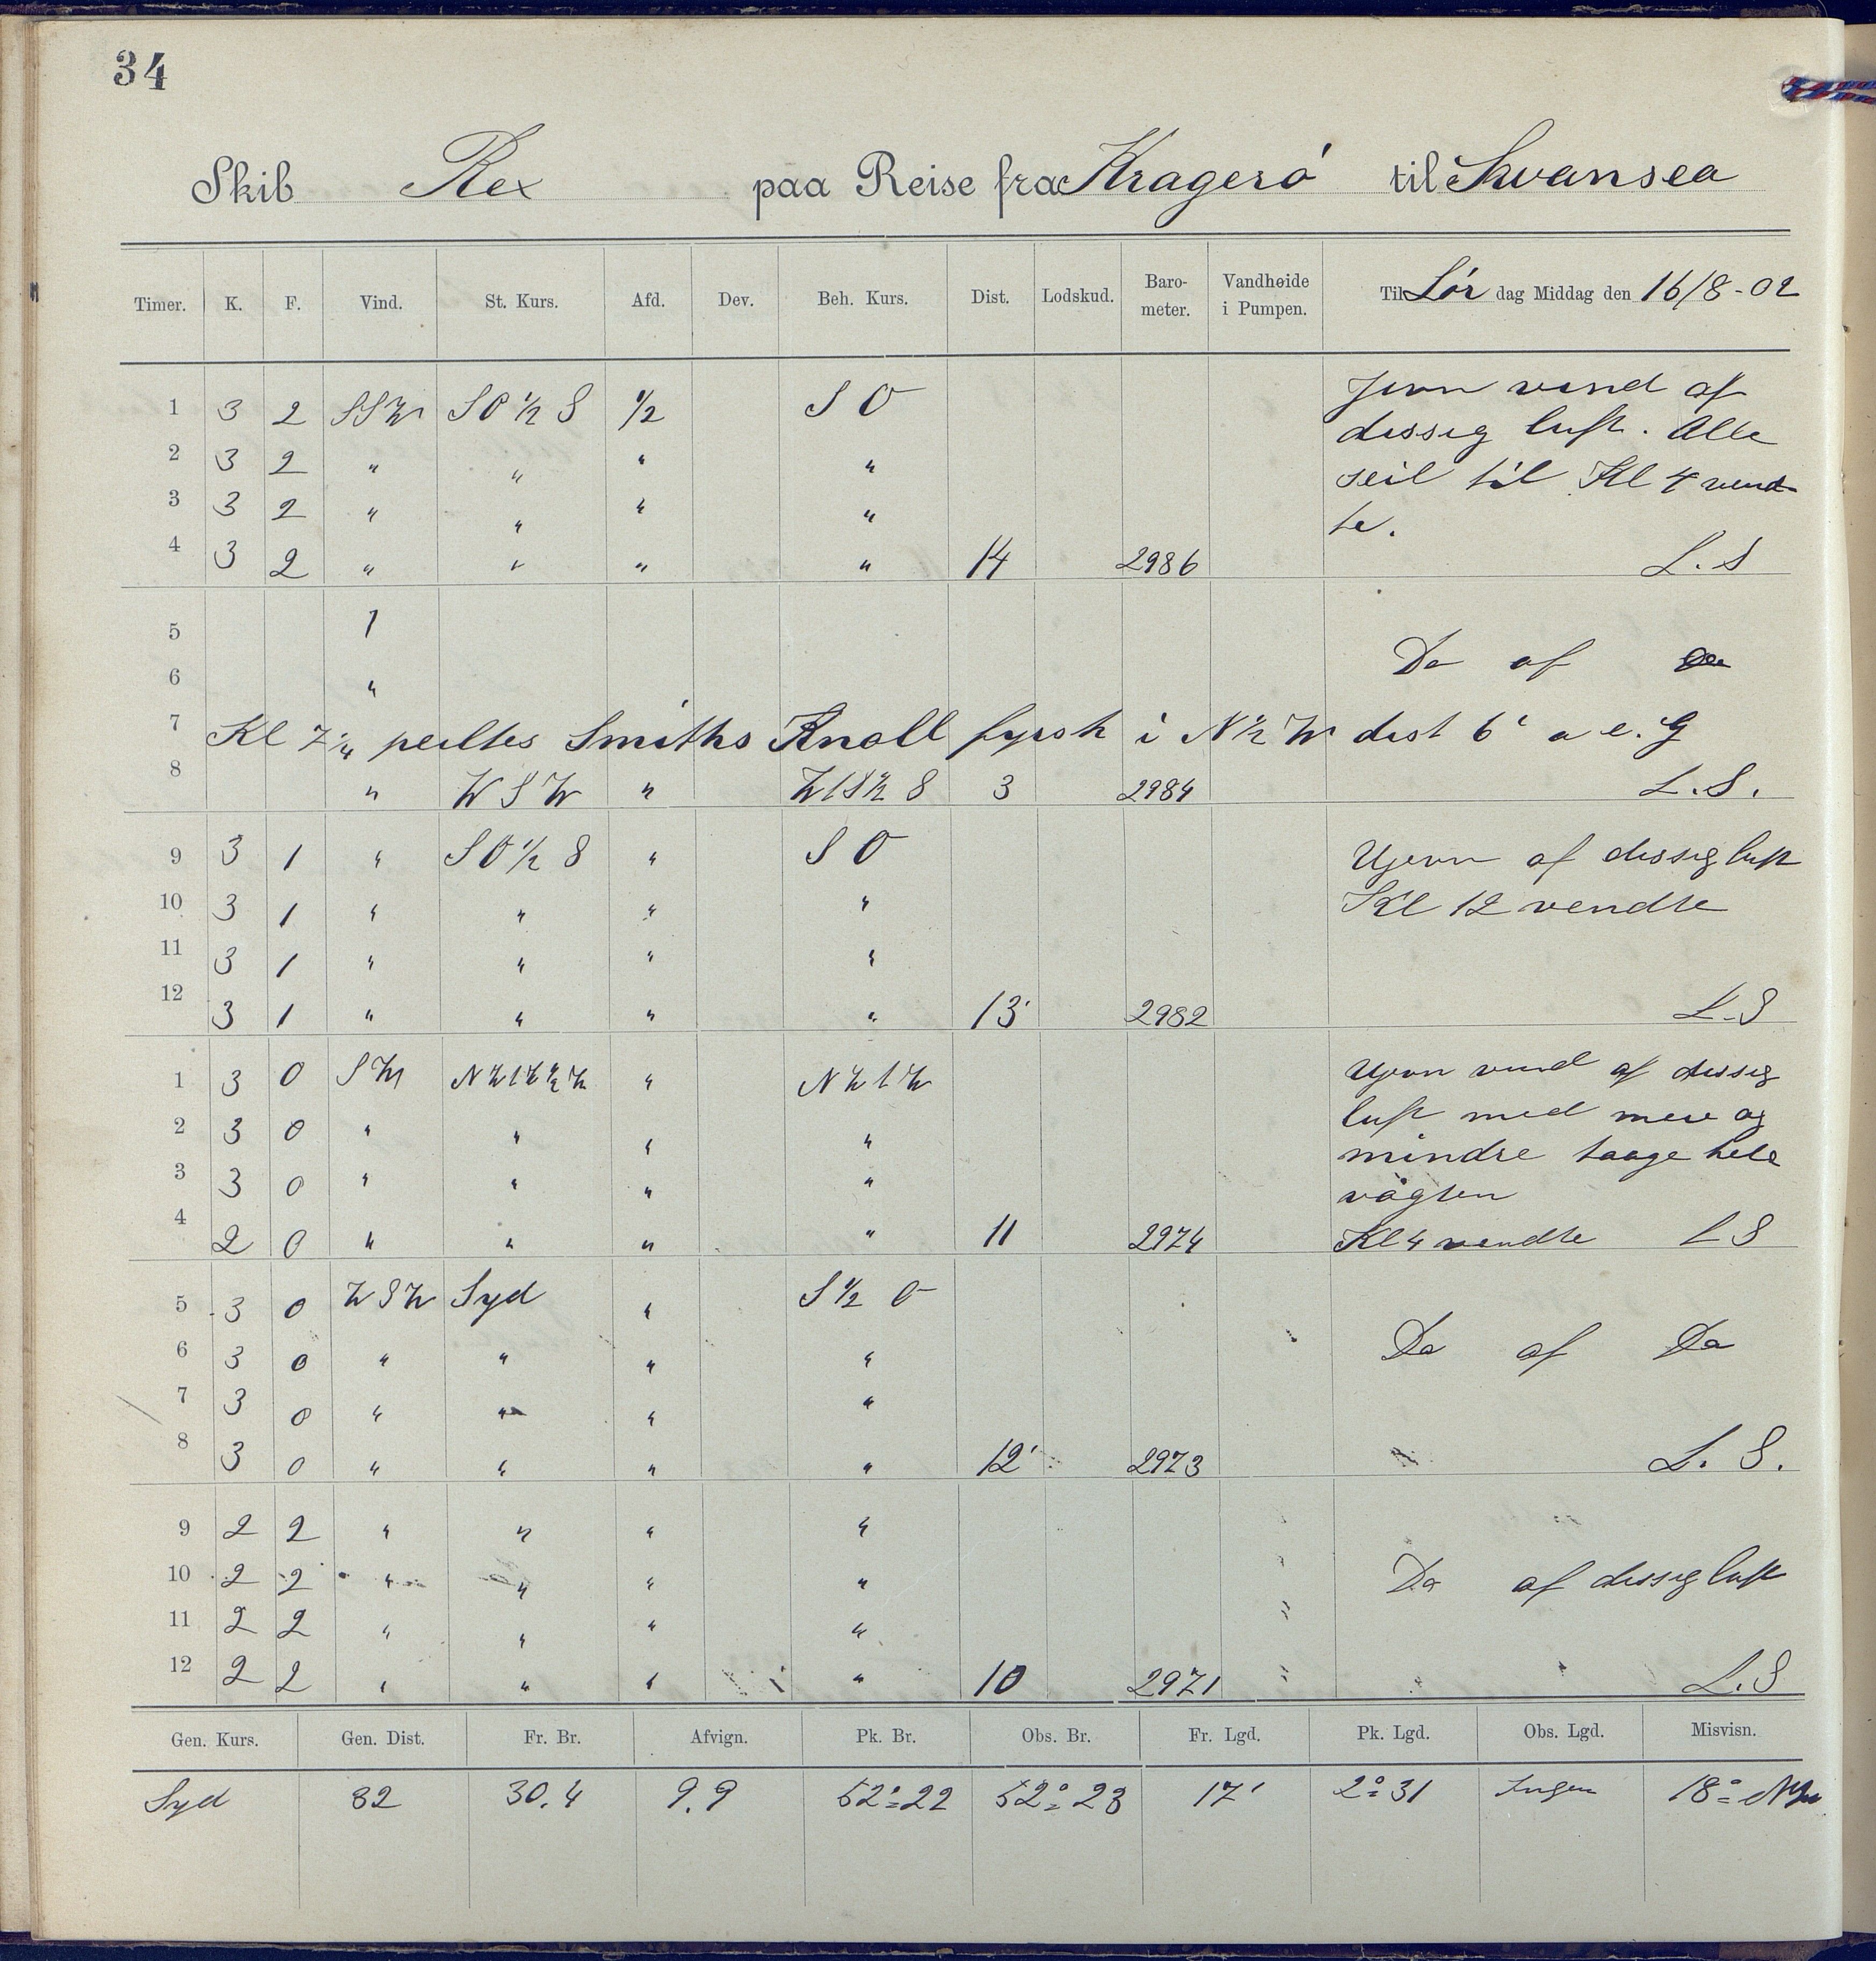 34
Skib Rex paa Reise fra Kragerö til Swansea
Timer. K. F. Vind. St. Kurs. Afd. Dev. Beh. Kurs. Dist. Lodskud. Baro-meter. Vandhøide i Pumpen. Til Lör dag Middag den 16/8-02
1 3 2 SSW SO ½ S ½ SO Jevn vind af
2 3 2 " " " " dissig luft. Alle
3 3 2 " " " " seil til Kl 4 vend-
te.
4 3 2 " " " " 14 2986 L.S
5 1
6 " Do af Do
7 Kl 7¼ peiltes Smiths Knoll fyrsk i N½W dist 6' a e. G
8 " WSW " W1S½S 3 2984 L.S.
9 3 1 " SO ½ S " SO Ujevn af dissig luft
10 3 1 " " " " Kl 12 vendte
11 3 1 " " " "
12 3 1 " " " " 13' 2982 L.S
1 3 0 SW NW1W½W " NW1W Ujevn vind af dissig
2 3 0 " " " " luft med mere og
3 3 0 " " " " mindre taage hele
vagten
4 2 0 " " " " 11 2974 Kl 4 vendte LS
5 3 0 WSW Syd " S½O
6 3 0 " " " " Do af Do
7 3 0 " " " "
8 3 0 " " " " 12' 2973 L.S.
9 2 2 " " " "
10 2 2 " " " " Do af dissig luft
11 2 2 " " " "
12 2 2 " " " " 10 2971 L.S
Gen. Kurs. Gen. Dist. Fr. Br. Afvign. Pk. Br. Obs. Br. Fr. Lgd. Pk. Lgd. Obs. Lgd. Misvisn.
Syd 32 30.4 9.9 52°=22 52°=23 17' 2°=31 Ingen 18°=